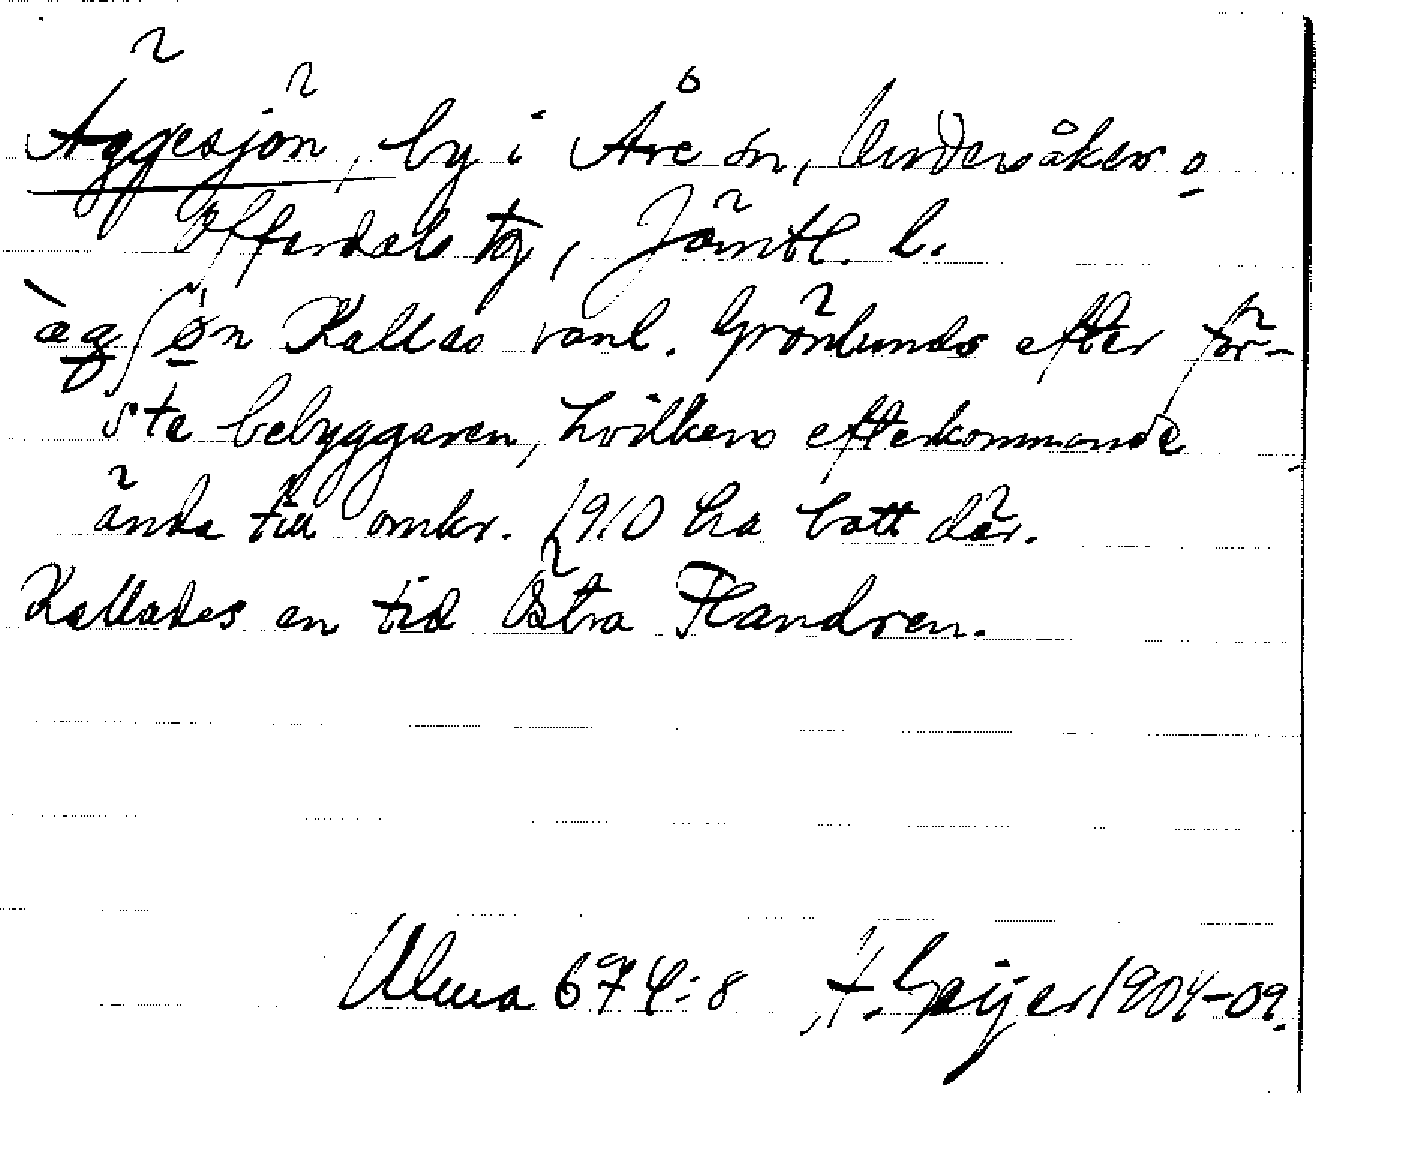 Äggesjön, by i Åre sn, Undersåkers o
Offerdals tg, Jämtl. l.
Kallas vanl. Grönlunds efter för-
sta bebyggaren, hvilkens efterkommande
ända till omkr. 1910 ha bott där.
Kallades en tid Östra Flandren.
Ulma 674:8 H. Geijer 1904-09.